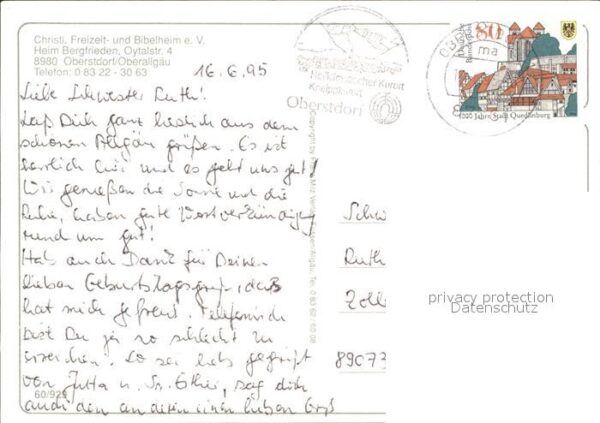 Christl. Freizeit- und Bibelheim e. V.
Heim Bergfrieden, Oytalstr. 4
8980 Oberstdorf/Oberallgäu
Telefon: 0 83 22 - 30 63
16.6.95
Heilklimatischer Kurort
Kneippkurort
Oberstdorf
80
Deutsche Bundespost
1000 Jahre Stadt Quedlinburg
Liebe Schwester Ruth!
Laß Dich ganz herzlich aus dem
schönen Allgäu grüßen. Es ist
herrlich hier und es geht uns gut!
Wir genießen die Sonne und die
Ruhe, haben gute Wortverkündigung
rund um gut!
Hab auch Dank für Deinen
lieben Geburtstagsgruß, der
hat mich gefreut. Telefonisch
bist Du ja so schlecht zu
erreichen. So sei lieb gegrüßt
von Jutta u. Sr. Esther, sag dich
auch den anderen einen lieben Gruß
60/929
Schw
Ruth
Zoll
89073
privacy protection
Datenschutz